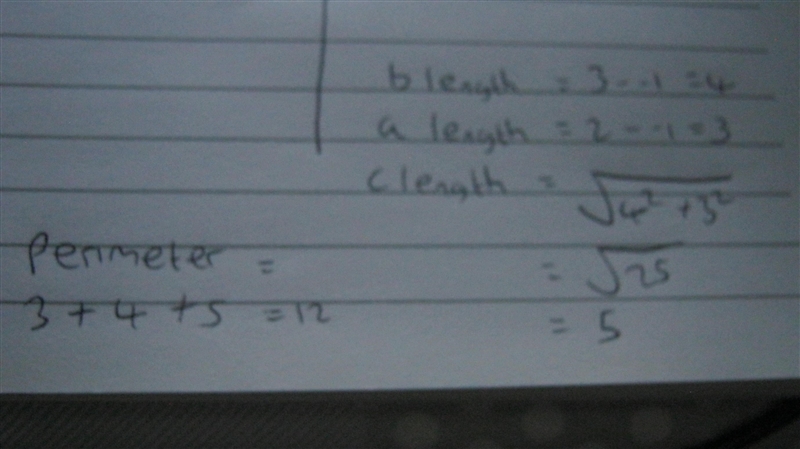 b length = 3 - -1 = 4
a length = 2 - -1 = 3
c length = √4² + 3²
= √25
= 5
Perimeter =
3 + 4 + 5 = 12